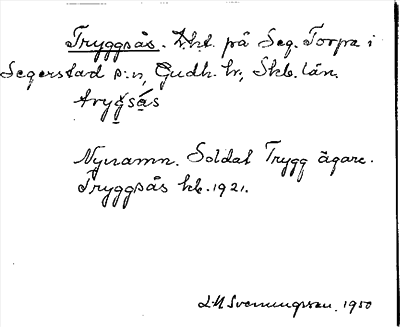 Tryggsås. Lht. på Seg. Torpa i
Segerstad s:n, Gudh. hr, Skb. län.
trygsås
Nynamn. Soldat Trygg ägare.
Tryggsås kb. 1921.
L M Svenungsson. 1950